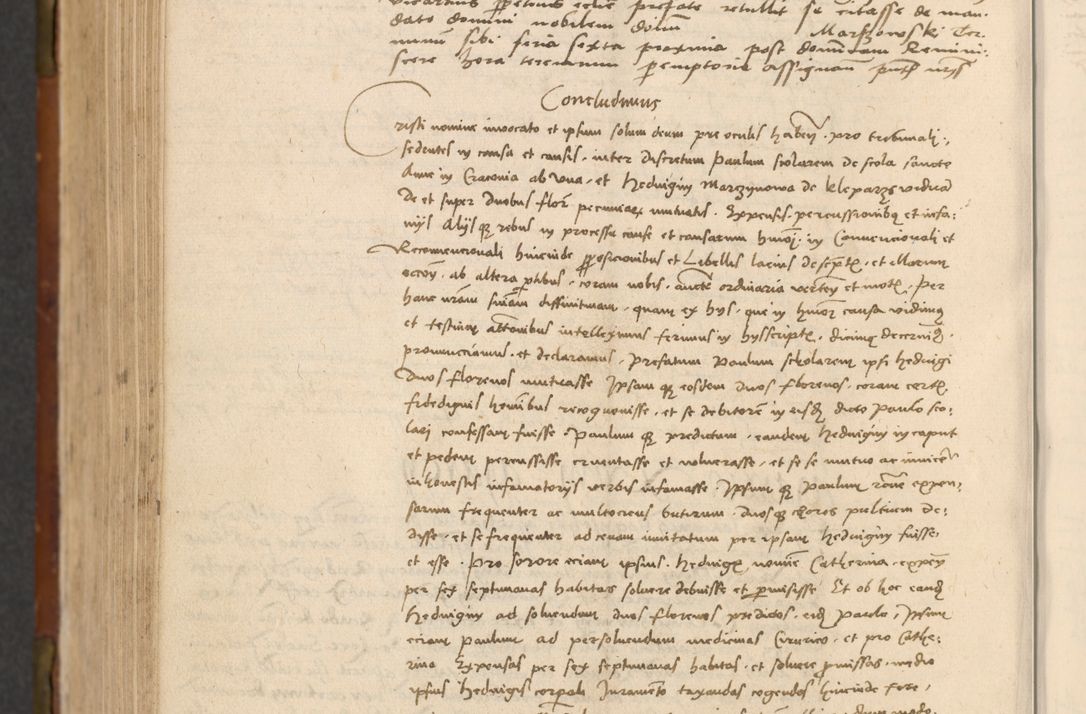 vicarius perpetuus eccle prefate retulit se citasse de man-
dato domini nobilem domin Marszowski Ter-
minum sibi feria sexta proxima post dominicam Remini-
scere hora terciarum peremptorie assignan
Concludimus
Cristi nomine invocato et ipsum solum deum pre oculis haben pro tribunali
sedentes in causa et causis inter Discretum Paulum scolarem de scola sancte
Anne in Cracovia ab una et Hedvigim Marczynowa de Kleparzs viduam
De et super Duobus flor pecuniarum mutuatis Expensis percussionibus et infa-
mijs Alijsque rebus in processu cause et causarum hmoi in Convencionali et
Reconvencionali hincinde propositionibus et Libellis lacius descript et illarum
occon ab altera partibus coram nobis aucte ordinaria verten et mot Per
hanc nram sniam diffinitivam quam ex hijs que in hmoi causa vidimus
et testium attonibus intelleximus ferimus in hijs scriptis dicimus decernim
pronunciamus et declaramus Prefatum Paulum scholarem ipsi Hedvigi
Duos florenos mutuasse Ipsamque eosdem duos florenos coram certis
fidedignis hominibus recognovisse et se debitorem in eisdem dicto Paulo sco-
lari confessam fuisse Paulumque predictum eandem Hedvigim in caput
et pedem percussisse cruentasse et vulnerasse et se se mutuo ac invicem
inhonestis infamatorijs verbis infamasse Ipsumque Paulum rone expen-
sarum frequenter ac multociens butirum duosque choros pultium de-
disse et se frequenter ad cenam invitatum per ipsam Hedvigim fuisse
et esse Pro sorore eciam ipsius Hedvigis nomine Catherina expen
per sex septimanas habitas solvere debuisse et promisisse Et ob hoc eand
Hedvigim ad solvendum duos florenos predictos eid Paulo Ipsum
eciam Paulum ad persolvendum medicinas Cirurico et pro Cathe-
rina Expensas per sex septimanas habitas et solvere promissas medio
ipsius Hedvigis corporali Juramento taxandas cogendos hincinde fore